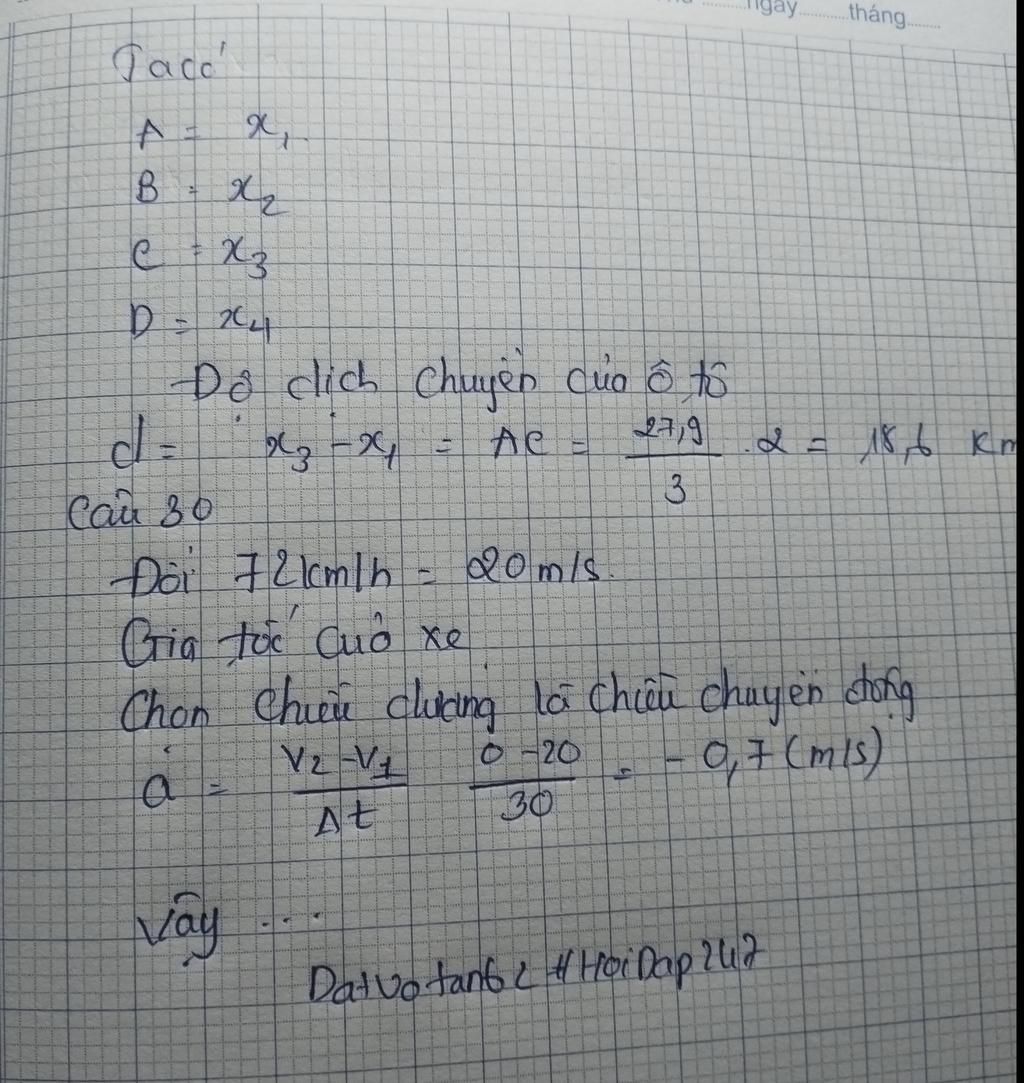 ngày.........tháng.........
Ta có
A = x₁
B = x₂
C = x₃
D = x₄
Độ dịch chuyển của ô tô
d = x₃ - x₁ = AC = 27,9/3 . 2 = 18,6 km
Câu 30
Đổi 72 km/h = 20 m/s.
Gia tốc của xe
Chọn chiều dương là chiều chuyển động
a = V₂ - V₁/Δt 0 - 20/30 = - 0,7 (m/s)
Vậy ....
Datvotan62 #HoiDap247